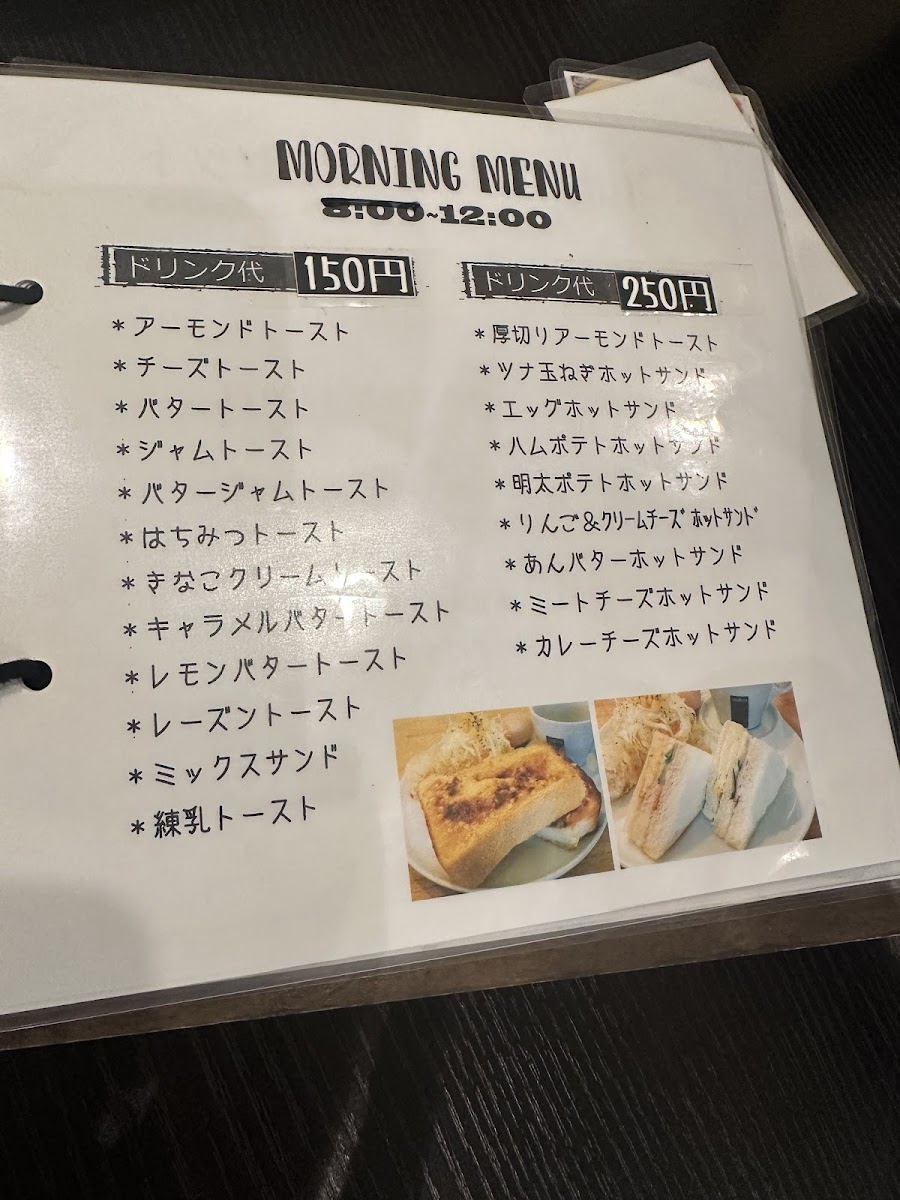 MORNING MENU
8:00~12:00
ドリンク代 150円
*アーモンドトースト
*チーズトースト
*バタートースト
*ジャムトースト
*バタージャムトースト
*はちみつトースト
*きなこクリームトースト
*キャラメルバタートースト
*レモンバタートースト
*レーズントースト
*ミックスサンド
*練乳トースト
ドリンク代 250円
*厚切りアーモンドトースト
*ツナ玉ねぎホットサンド
*エッグホットサンド
*ハムポテトホットサンド
*明太ポテトホットサンド
*りんご&クリームチーズホットサンド
*あんバターホットサンド
*ミートチーズホットサンド
*カレーチーズホットサンド